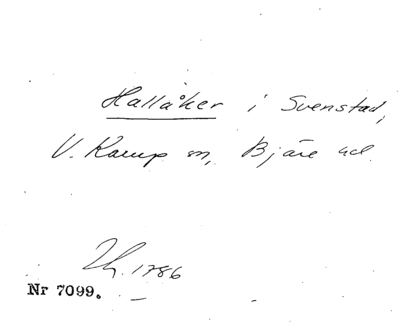 Hallåker i Svenstad,
V. Karup sn, Bjäre hd.
1786
Nr 7099.